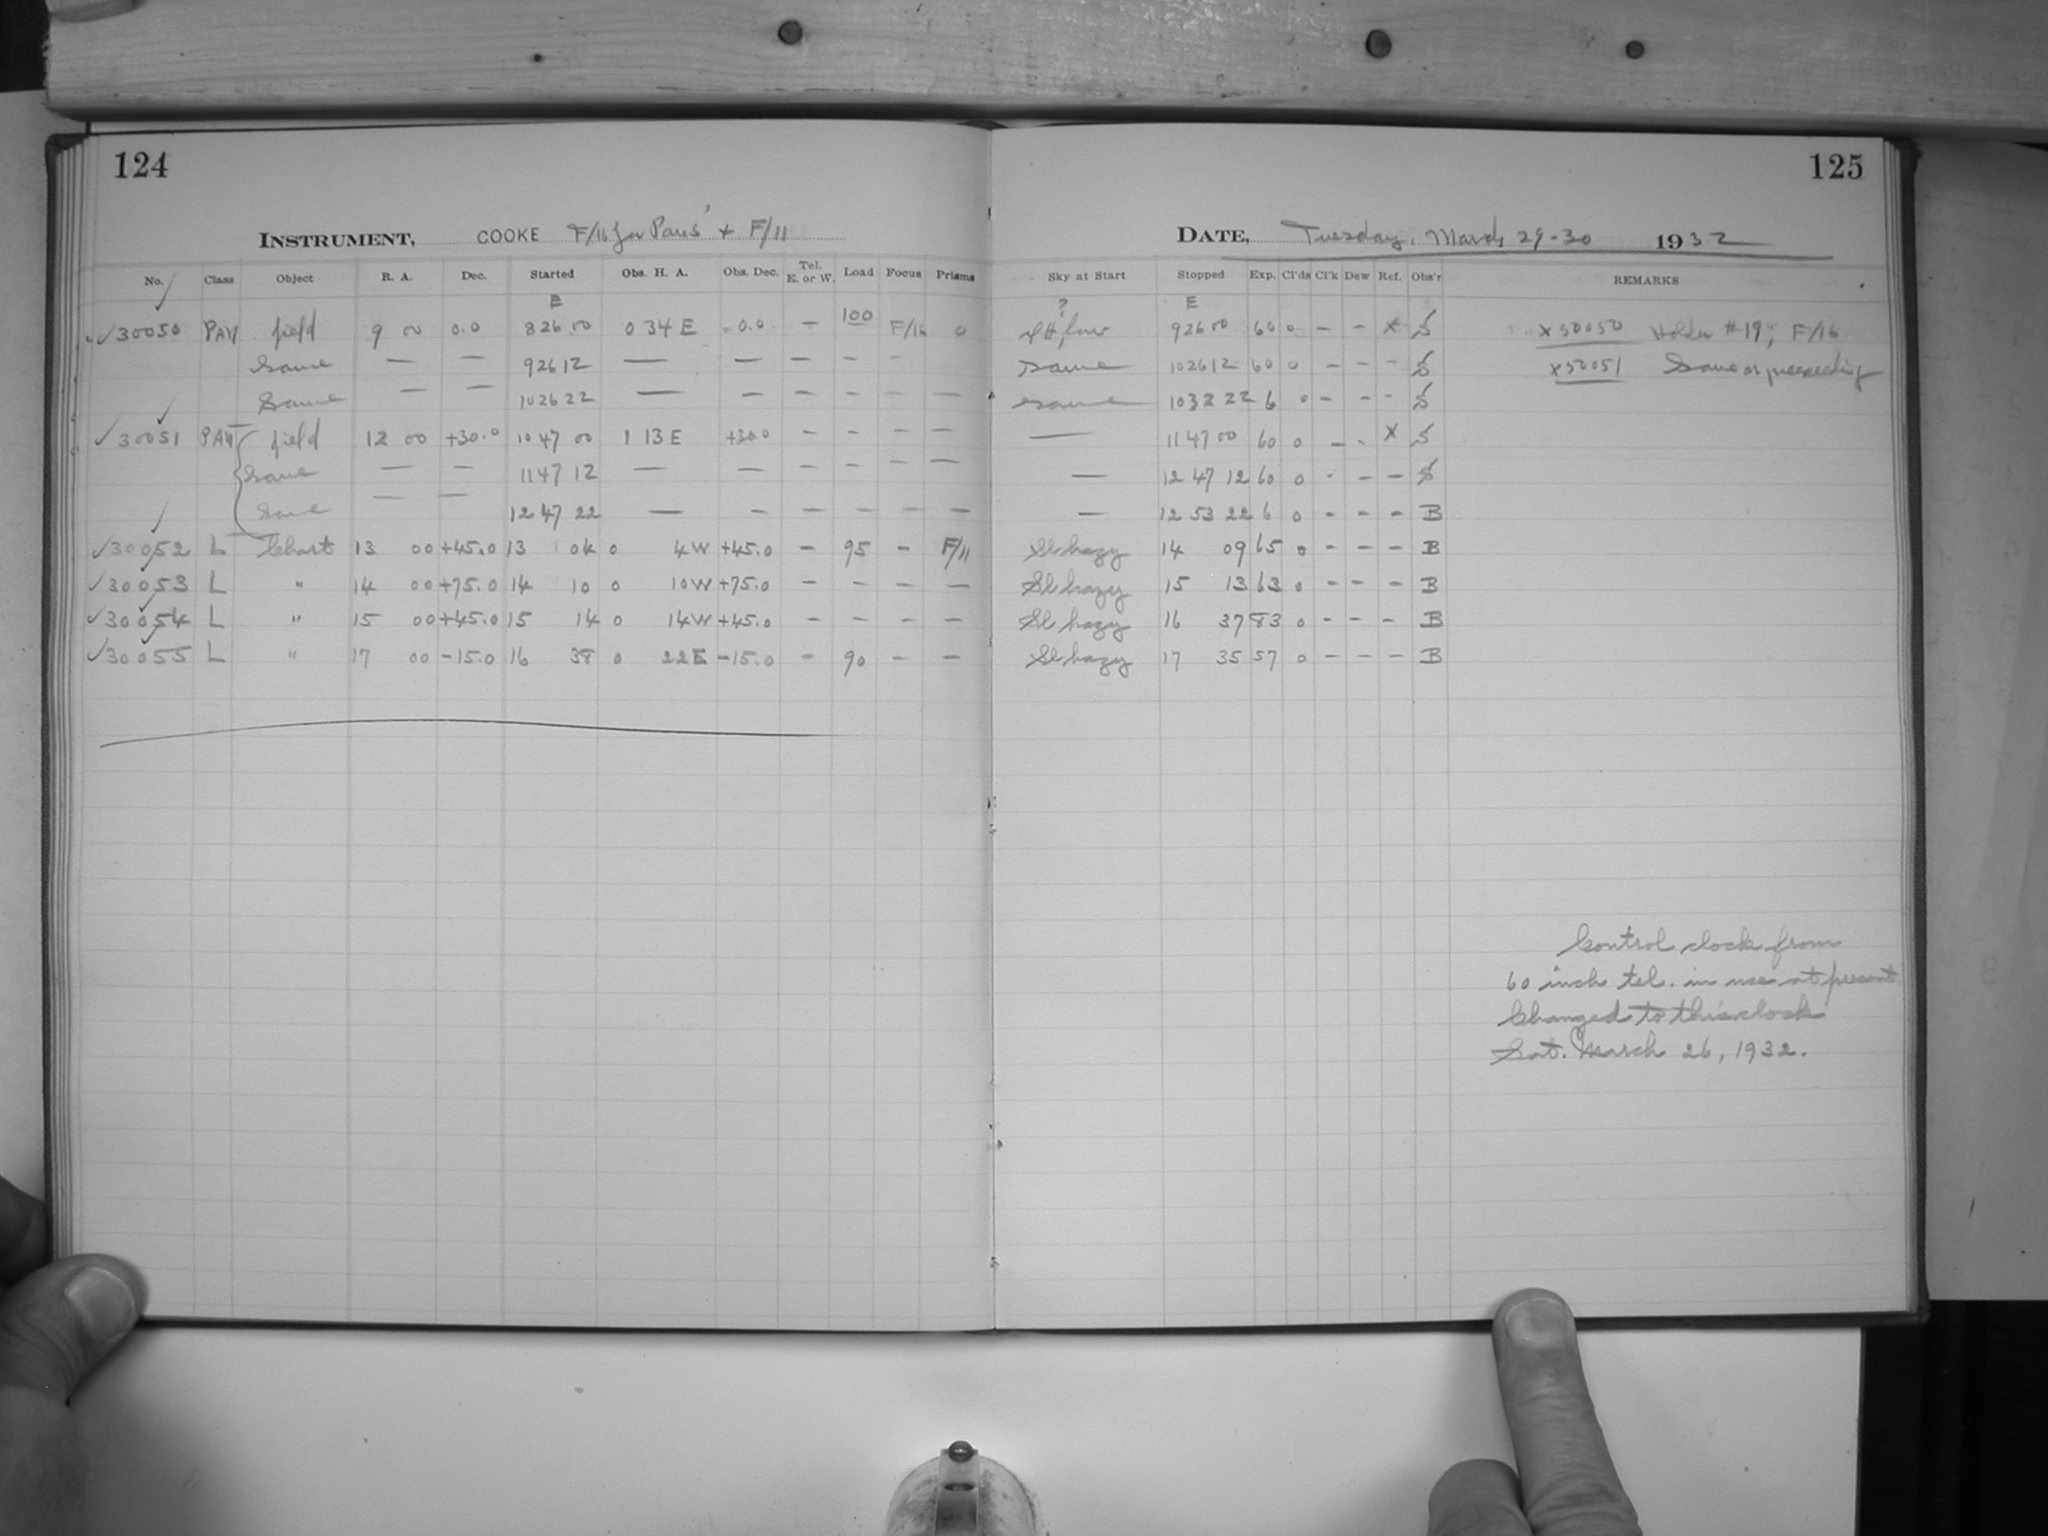 124
INSTRUMENT, COOKE F/16 for Paris' + F/11
No. Class Object R. A. Dec. Started Obs. H. A. Obs. Dec. Tel. E. or W. Load Focus Prisms
E
30050 field 9 00 0.0 8 26 00 0 34 E 0.0 — 100 F/16 0
Same — — 9 26 12 — — — — — —
Same — — 10 26 22 — — — — — —
30051 field 12 00 +30.0 10 47 00 1 13 E +30.0 — — — —
Same — — 11 47 12 — — — — — —
Same — — 12 47 22 — — — — — —
30052 L Chart 13 00 +45.0 13 04 0 4 W +45.0 — 95 — F/11
30053 L " 14 00 +75.0 14 10 0 10 W +75.0 — — — —
30054 L " 15 00 +45.0 15 14 0 14 W +45.0 — — — —
30055 L " 17 00 -15.0 16 38 0 22 E -15.0 — 90 — —
125
DATE, Tuesday, March 29-30 1932
Sky at Start Stopped Exp. Cl'ds Cl'k Dew Ref. Obs'r REMARKS
? E
9 26 00 60 0 — — x S x50050 Holder #19; F/16
Same 10 26 12 60 0 — — — S x50051 Same as preceeding
Same 10 32 22 6 0 — — — S
— 11 47 00 60 0 — - x S
— 12 47 12 60 0 - — — S
— 12 53 22 6 0 — — — B
Sl hazy 14 09 65 0 — — — B
Sl hazy 15 13 63 0 — — — B
Sl hazy 16 37 83 0 — — — B
Sl hazy 17 35 57 0 — — — B
Control clock from
60 inch tel. in use at present
Changed to this clock
Sat. March 26, 1932.